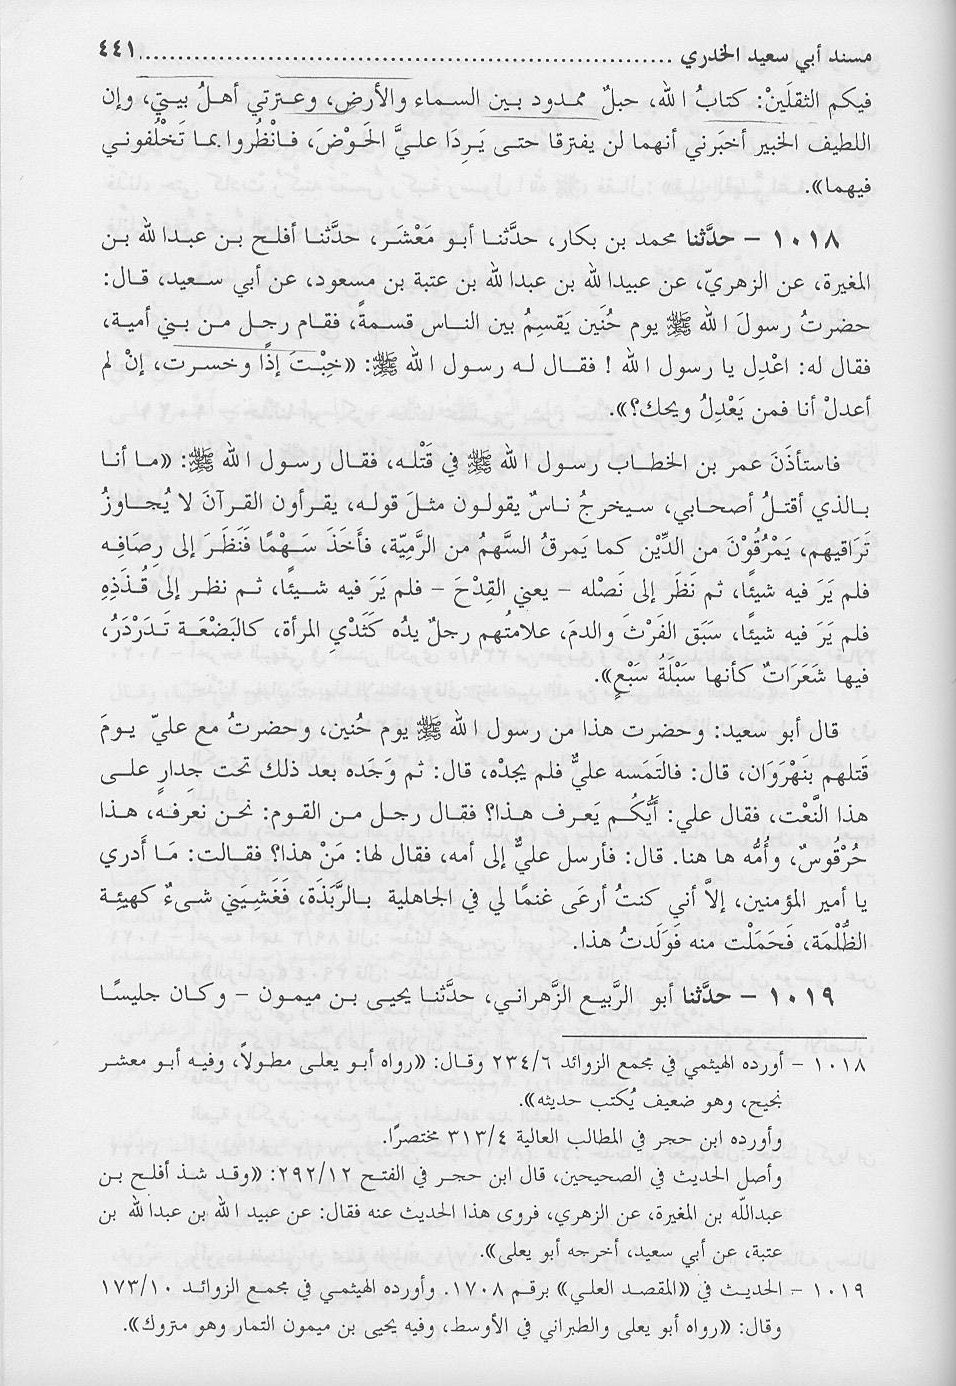 مسند أبي سعيد الخدري ........................................................................ ٤٤١
فيكم الثقلَينْ: كتابُ الله، حبلٌ ممدود بين السماء والأرضِ، وعـترتي أهلُ بيتي، وإن
اللطيف الخبير أخبَرني أنهما لن يفترقا حتى يَرِدَا عليَّ الحَوْضَ، فـانْظُروا بمـا تَخْلُفونـي
فيهما».
١٠١٨ - حدَّثنا محمد بن بكار، حدَّثنـا أبـو مَعْشَـر، حدَّثنـا أفلـح بـن عبـدالله بـن
المغيرة، عن الزهريّ، عن عبيدالله بن عبدالله بن عتبة بن مسعود، عن أبي سـعيد، قـال:
حضرتُ رسولَ الله ﷺ يوم حُنَين يَقسِمُ بين النـاس قسـمةً، فقـام رجـل مـن بـني أميـة،
فقال له: اعْدِل يا رسول الله ! فقـال لـه رسـول الله ﷺ: «خِبْتَ إذًا وخسـرت، إنْ لم
أعدلْ أنا فمن يَعْدِلُ ويحك؟».
فاستأذَنَ عمر بن الخطـاب رسـول الله ﷺ في قَتْلـه، فقـال رسـول الله ﷺ: «مـا أنـا
بـالذي أقتـلُ أصحـابي، سـيخرجُ نـاسٌ يقولـون مثـلَ قولـه، يقـرأون القـرآنَ لا يُجـاوزُ
تَرَاقيهم، يَمْرُقُوْنَ من الدِّيْن كما يَمرقُ السَّهمُ من الرَّمِيّة، فأخَذَ سَـهْمًا فَنَظَـرَ إلى رِصَافِـه
فلم يَرَ فيه شيئًا، ثم نظَر إلى نَصْله - يعني القِدْحَ - فلم يَرَ فيه شـيئًا، ثـم نظـر إلى قُـذَذِهِ
فلم يَرَ فيه شيئًا، سَبَق الفَرْثَ والدمَ، علامتُهم رجلٌ يدُه كَثَدْي المرأة، كالبَضْعَـة تَـدَرْدَرُ،
فيها شَعَرَاتٌ كأنها سَبْلَةُ سَبْعٍ».
قال أبو سعيد: وحضرت هذا من رسول الله ﷺ يوم حُنين، وحضرتُ مع عليّ يـومَ
قَتلهم بنَهْرَوَان، قال: فالتَمَسه عليٌّ فلم يجدْه، قال: ثم وَجَده بعد ذلك تحت جِدارٍ علـى
هذا النَّعْت، فقال علي: أيُّكُم يَعرف هذا؟ فقال رجـل مـن القـوم: نحـن نعرفـه، هـذا
حُرْقُوسٌ، وأُمُّه ها هنا. قال: فأرسل عليٌّ إلى أمه، فقال لها: مَنْ هذا؟ فقـالت: مَـا أدري
يا أمير المؤمنين، إلاَّ أني كنتُ أرعَى غنمًا لي في الجاهلية بـالرَّبَذَة، فَغَشِيَني شـىءٌ كهيئـة
الظُّلْمَة، فَحَمَلْت منه فَوَلَدتُ هذا.
١٠١٩ - حدَّثنا أبو الرَّبيع الزَّهراني، حدَّثنـا يحيـى بـن ميمـون - وكـان جليسًـا
١٠١٨ - أورده الهيثمي في مجمع الزوائد ٢٣٤/٦ وقـال: «رواه أبو يعلـى مطولاً، وفيه أبو معشر
نجيح، وهو ضعيف يُكتب حديثه».
وأورده ابن حجر في المطالب العالية ٣١٣/٤ مختصرًا.
وأصل الحديث في الصحيحين، قال ابن حجر في الفتح ٢٩٢/١٢: «وقـد شذ أفلح بن
عبداللّه بن المغيرة، عن الزهري، فروى هذا الحديث عنه فقال: عن عبيد الله بن عبدالله بن
عتبة، عن أبي سعيد، أخرجه أبو يعلى».
١٠١٩ - الحديث في «المقصد العلي» برقم ١٧٠٨. وأورده الهيثمي في مجمع الزوائـد ١٧٣/١٠
وقال: «رواه أبو يعلى والطبراني في الأوسط، وفيه يحيى بن ميمون التمار وهو متروك».